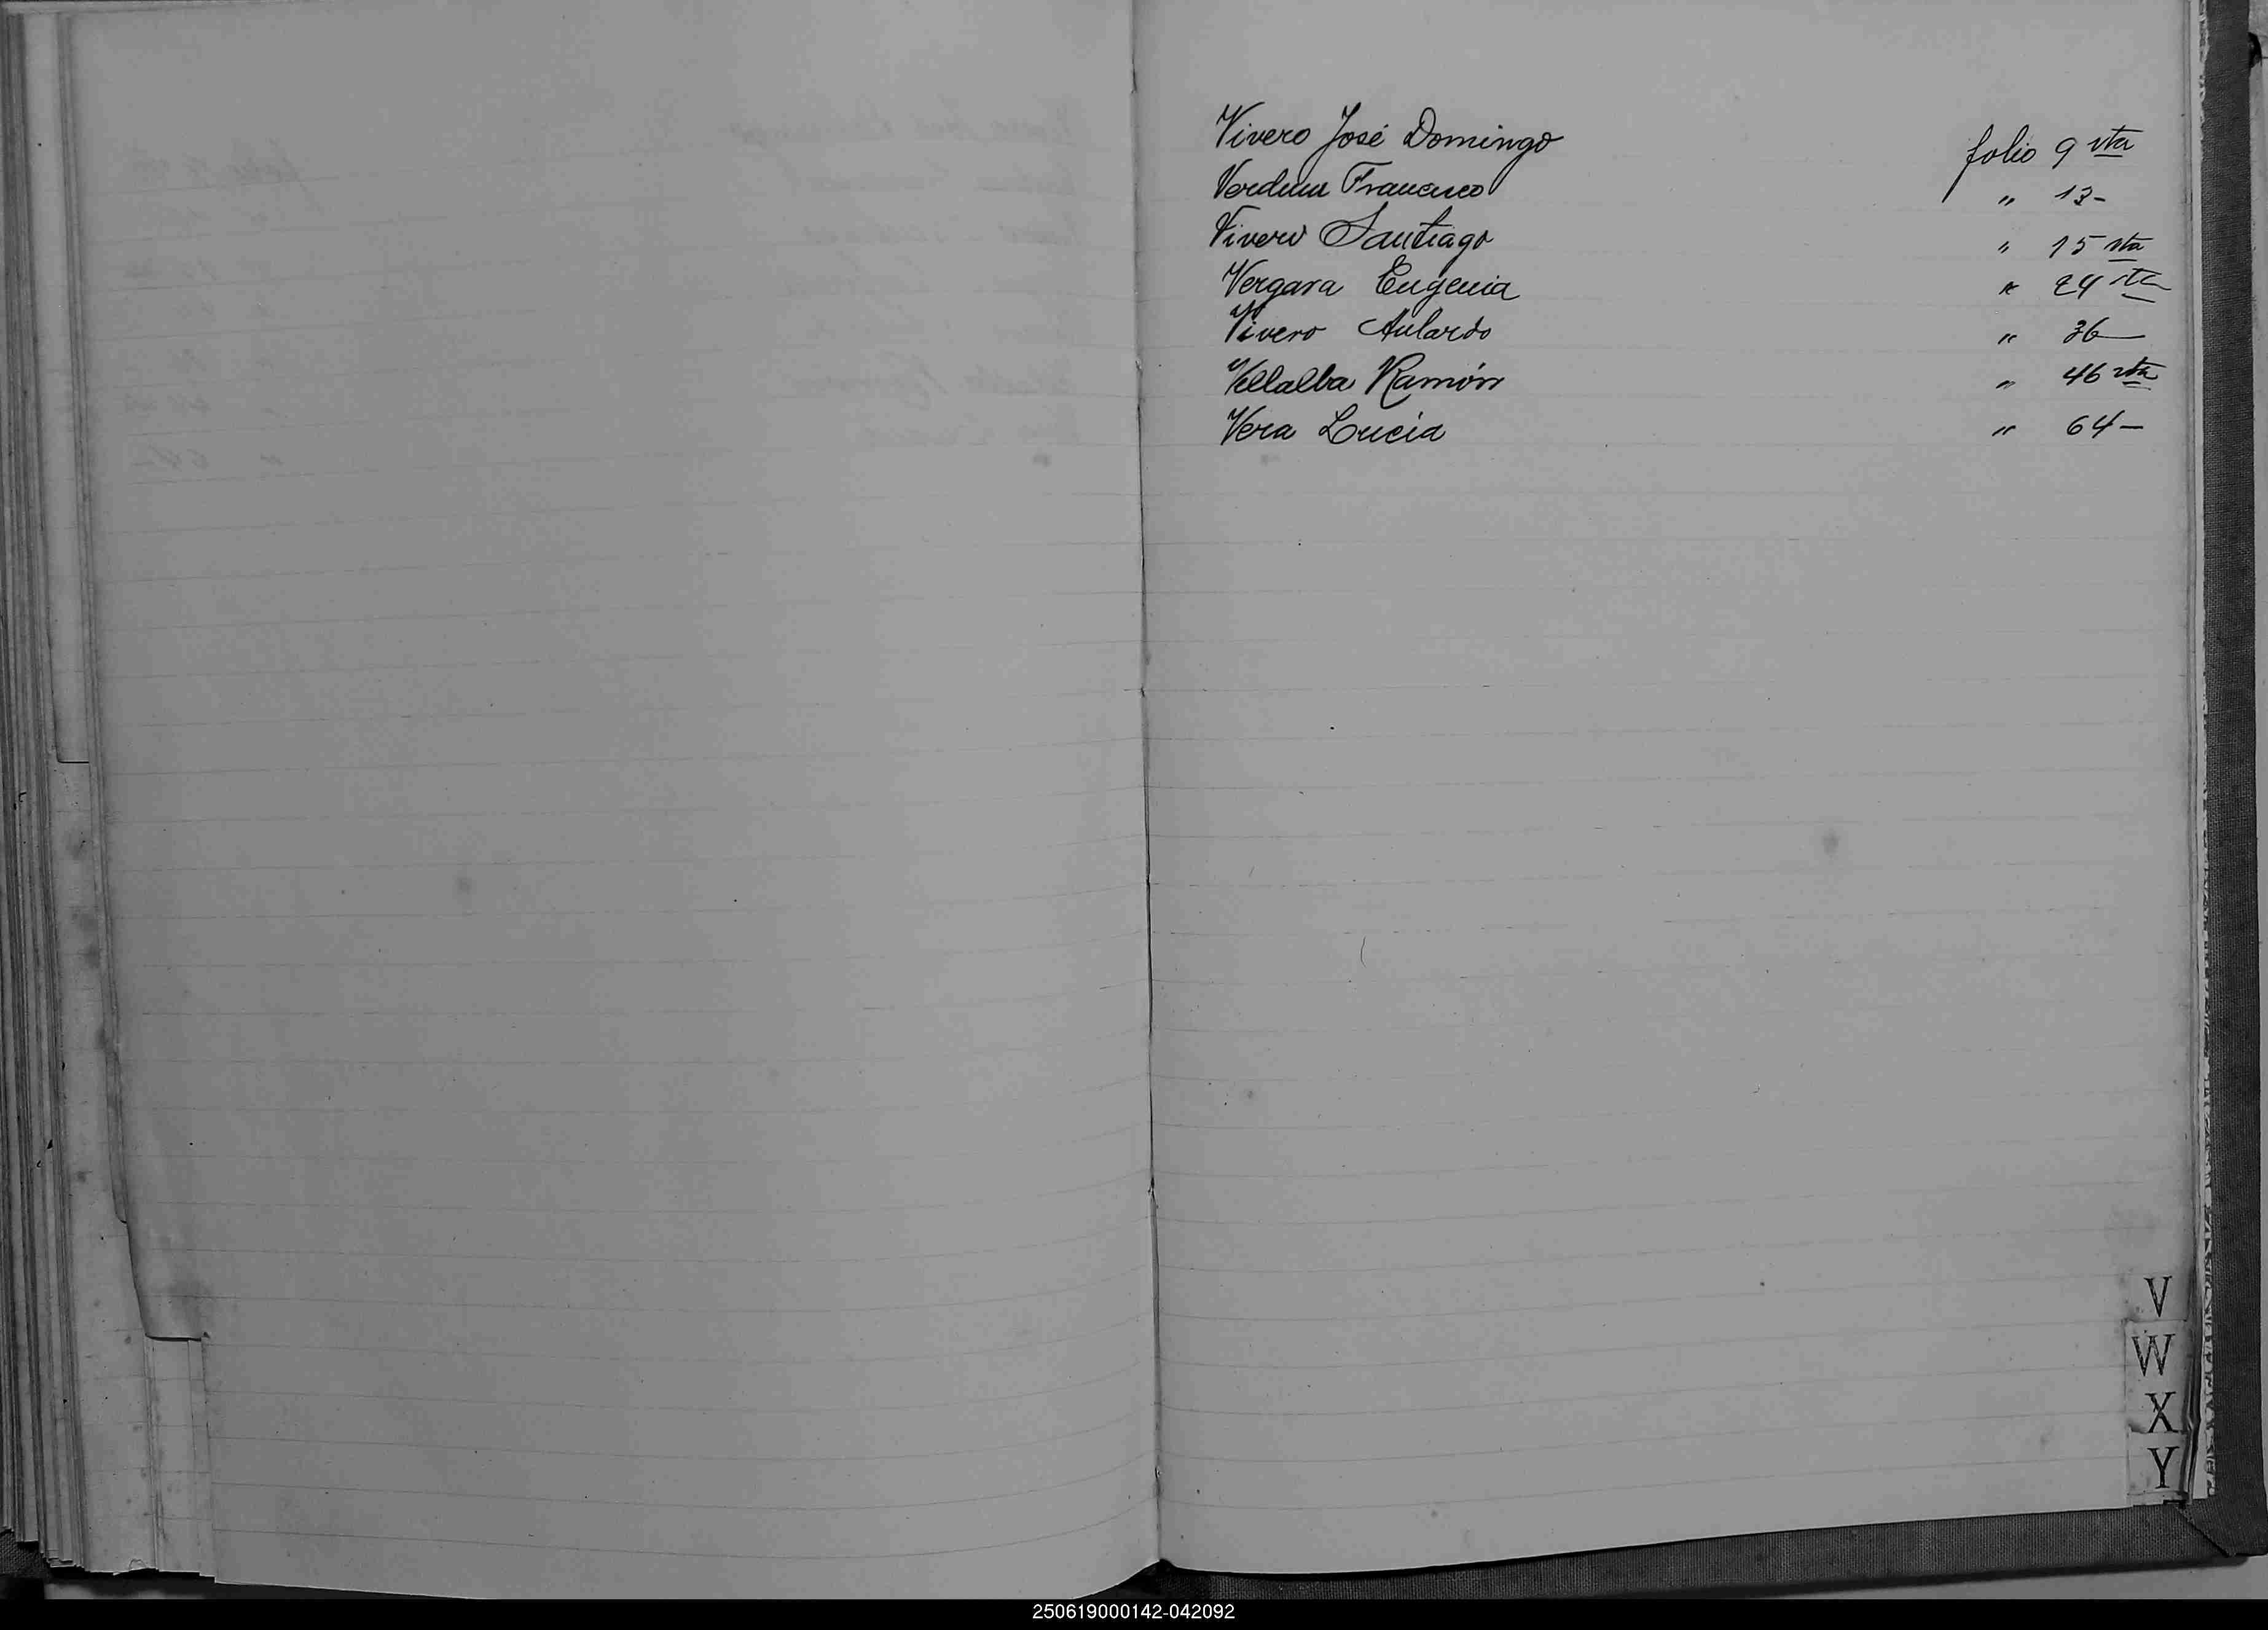 Vivero José Domingo folio 9 vta
Verdum Francisco " 13-
Vivero Santiago " 15 vta
Vergara Eugenia " 24 vta
Vivero Aulardo " 36—
Villalba Ramón " 46 vta
Vera Lucía " 64-
V
W
X
Y
250619000142-042092